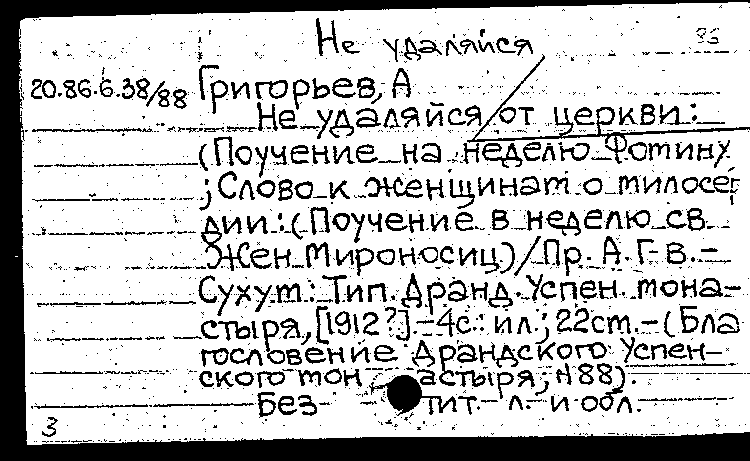 Не удаляйся
86
20.86.6.38/88 Григорьев, А
Не удаляйся от церкви:
(Поучение на неделю Фотину
; Слово к женщинам о милосер
дии: (Поучение в неделю св.
Жен Мироносиц) / Пр. А. Г-в. –
Сухум: Тип. Дранд. Успен. мона-
стыря, [1912?]. – 4с.: ил.; 22см. – (Бла
гословение Драндского Успен-
ского монастыря; №88).
Без тит. л. и обл.
3